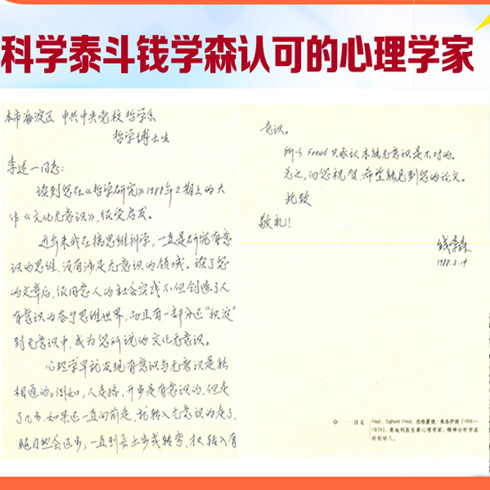 科学泰斗钱学森认可的心理学家
本市海淀区 中共中央党校 哲学系
哲学博士生
李述一同志:
读到您在《哲学研究》1988年2期上的大
作《文化无意识》,很受启发。
近年来我在搞思维科学,一直是研究有意
识的思维,没有涉足无意识的领域。读了您
的文章后,很同意人的社会实践不但创造了人
有意识的各个思维世界,而且有一部分还“积淀”
到无意识中,成为您所说的文化无意识。
心理学早就发现有意识与无意识是能
相通的。例如,人走路,开步是有意识的,但走
了几步,如果还一直向前走,就转入无意识的走了,
腿自然会迈步,一直到要止步或转弯,才又转入有
意识。
所以Freud只承认本能无意识是不对的。
总之,向您祝贺,希望能见到您的论文。
此致
敬礼!
钱学森
1988.3.19
注文
Freud,Sigmund Freud,西格蒙德·弗洛伊德(1856—
1939),奥地利医生兼心理学家,精神分析学派
的创始人。